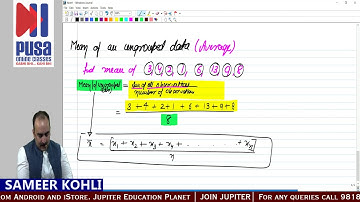 PUSA
ONLINE CLASSES
Mean of an ungrouped data (Average)
find mean of 3, 4, 2, 1, 6, 13, 9, 8
Mean of ungrouped data = Sum of all observations / number of observations
= 3 + 4 + 2 + 1 + 6 + 13 + 9 + 8
8
x̄ = [x₁ + x₂ + x₃ + x₄ +
n
SAMEER KOHLI
om Android and iStore. Jupiter Education Planet | JOIN JUPITER | For any queries call 9818